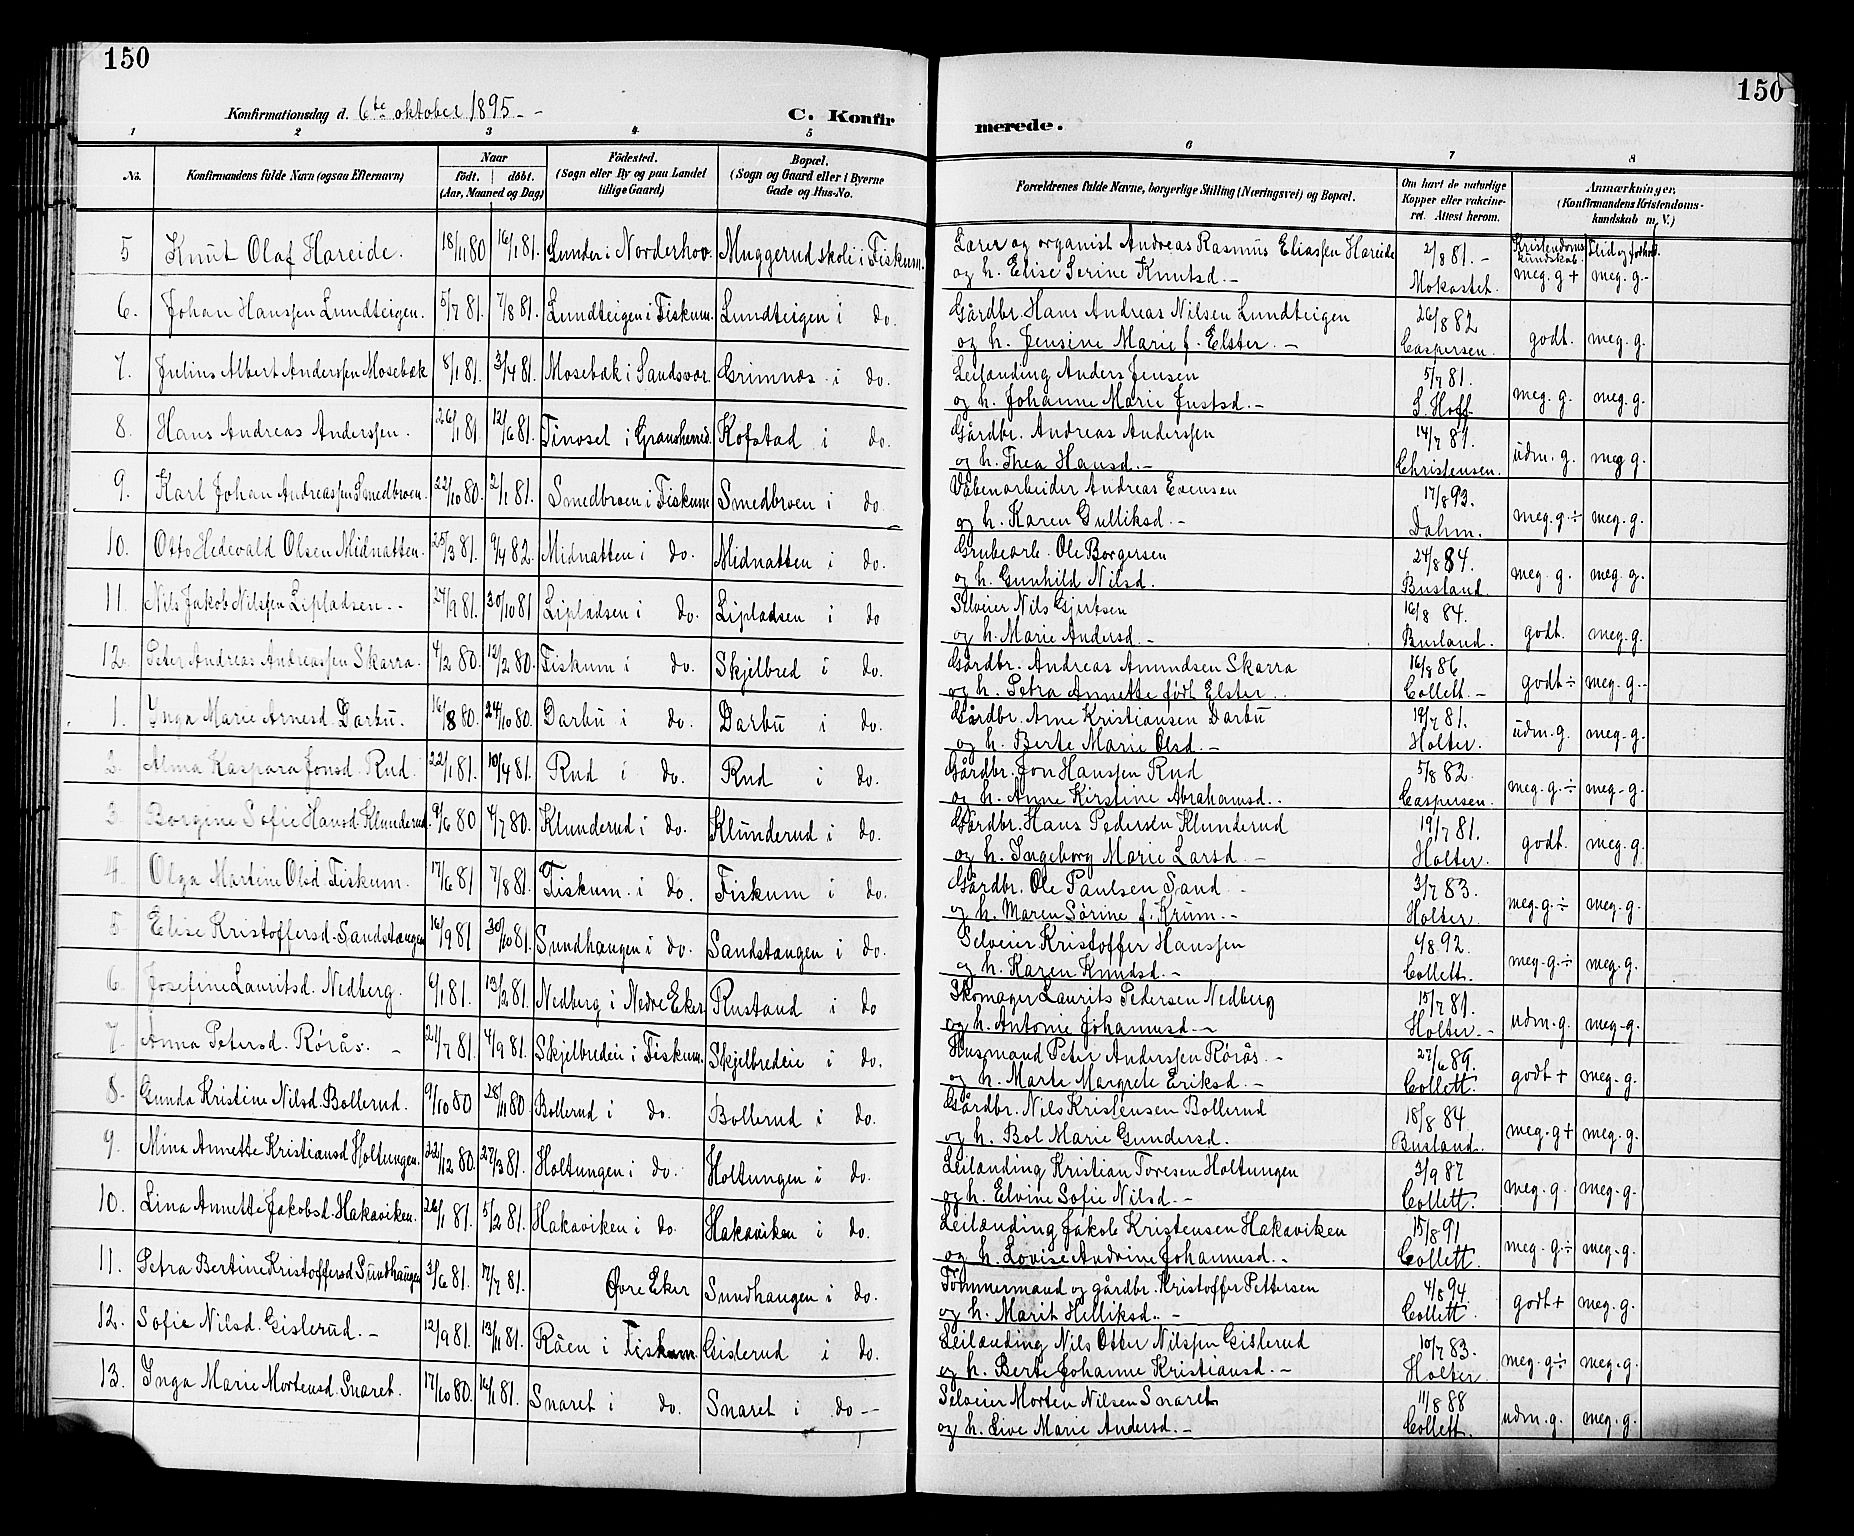 150
150
Konfirmationsdag d. 6te oktober 1895. -
C. Konfirmerede.
1 2 3 4 5 6 7 8
No. Konfirmandens fulde Navn (ogsaa Efternavn) Naar født. døbt. (Aar, Maaned og Dag) Fødested. (Sogn eller By og paa Landet tillige Gaard) Bopæl. (Sogn og Gaard eller i Byerne Gade og Hus-No. Forældrenes fulde Navne, borgerlige Stilling (Næringsvei) og Bopæl. Om havt de naturlige Kopper eller vakcineret. Attest herom. Anmærkninger. (Konfirmandens Kristendomskundskab m. V.)
5 Knut Olaf Hareide. 18/11 80 16/1 81. Lunder i Norderhov. Muggerud skole i Fiskum. Lærer og organist Andreas Rasmus Eliassen Hareide 2/8 81. - Kristendomskundskab. Flid og forhold.
og h. Elise Serine Knutsd. - Mokastet. meg. g + meg. g. -
6. Johan Hanssen Lundteigen. 5/7 81. 7/8 81. Lundteigen i Fiskum. Lundteigen i do. Gårdbr. Hans Andreas Nilsen Lundteigen 26/8 82
og h. Jensine Marie f. Elster. - Caspersen. godt. meg. g.
7. Julius Albert Anderssen Mosebæk 8/1 81. 3/4 81. Mosebæk i Sandsvær. Grimnæs i do. Leilænding Anders Jensen 5/7 81.
og h. Johanne Marie Justsd. - S. Hoff meg. g. meg. g.
8. Hans Andreas Anderssen. 26/1 81 12/6 81. Tinoset i Gransherred. Kofstad i do. Gårdbr. Andreas Anderssen 14/7 81.
og h. Thea Hansd. - Christensen. udm. g. meg. g.
9. Karl Johan Andreassen Smedbroen. 22/10 80. 2/1 81. Smedbroen i Fiskum Smedbroen i do. Våbenarbeider Andreas Evensen 17/8 93.
og h. Karen Gulliksd. - Dahm. meg. g. ÷ meg. g.
10. Otto Hedevald Olsen Midnatten. 25/3 81. 9/4 82. Midnatten i do. Midnatten i do. Grubearb. Ole Borgersen 24/8 84.
og h. Gunhild Nilsd. Busland meg. g. meg. g.
11. Nils Jakob Nilssen Lipladsen. - 27/9 81. 30/10 81 Lipladsen i do. Lipladsen i do Selveier Nils Gjertsen 16/8 84.
og h. Marie Andersd. - Busland. godt. meg. g.
12. Peter Andreas Andreassen Skarra. 4/2 80. 12/2 80. Fiskum i do. Skjelbred i do. Gårdbr. Andreas Amundsen Skarra 16/8 86
og h. Petra Annette født Elster. Collett. - godt ÷ meg. g. -
1. Inga Marie Arnesd. Darbu. 16/8 80. 24/10 80. Darbu i do. Darbu i do. Gårdbr. Arne Kristiansen Darbu 19/7 81.
og h. Berte Marie Olsd. - Holter. udm. g. meg. g.
2. Alma Kaspara Jonsd. Rud. 22/1 81. 10/4 81. Rud i do. Rud i do. Gårdbr. Jon Hanssen Rud 5/8 82.
og h. Anne Kirstine Abrahamsd. . Caspersen. meg. g. ÷ meg. g.
3. Borgine Sofie Hansd. Klunderud. 9/6 80 4/7 80. Klunderud i do. Klunderud i do. Gårdbr. Hans Pedersen Klunderud 19/7 81.
og h. Ingeborg Marie Larsd. - Holter. godt. meg. g.
4. Olga Martine Olsd. Fiskum. 17/6 81 7/8 81. Fiskum. i do. Fiskum i do. Gårdbr. Ole Paulsen Sand - 3/7 83.
og h. Maren Sørine f. Krum. - Holter. meg. g. ÷ meg. g.
5 Elise Kristoffersd. Sandstangen 16/9 81 30/10 81. Sundhaugen i do. Sandstangen i do. Selveier Kristoffer Hanssen 4/8 92.
og h. Karen Knudsd. - Collett. meg. g. ÷ meg. g.
6. Josefine Lauritsd. Nedberg. 6/1 81. 13/2 81. Nedberg i Nedre Eker Rustand i do Skomager Laurits Pedersen Nedberg 15/7 81.
og h. Antonie Johannesd. - Holter. - udm. g. meg. g.
7. Anna Petersd. Rørås. - 24/7 81. 4/9 81. Skjelbredeie i Fiskum. Skjelbredeie i do. Husmand Peter Anderssen Rørås. - 27/6 89.
og h. Marte Margrete Eriksd. - Collett. godt + meg. g.
8. Gunda Kristine Nilsd. Bollerud. 9/10 80 28/11 80 Bollerud i do. Bollerud i do. Gårdbr. Nils Kristensen Bollerud 18/8 84
og h. Bol Marie Gundersd. Busland. meg. g + meg. g.
9. Mina Annette Kristiansd Holtungen. 22/12 80. 27/3 81. Holtungen i do. Holtungen i do. Leilænding Kristian Toresen Holtungen 3/9 87
og h. Elvine Sofie Nilsd. - Collett. meg. g. meg. g.
10. Lina Annette Jakobsd. Hakaviken. 26/1 81. 5/2 81. Hakaviken i do. Hakaviken i do. Leilænding Jakob Kristensen Hakaviken 15/8 91
og h. Lovise Andrine Johannesd. - Collett. meg. g. ÷ meg. g.
11. Petra Bertine Kristoffersd. Sundhaugen 3/6 81. 17/7 81. Øvre Eker Sundhaugen i do. Tømmermand og gårdbr. Kristoffer Pettersen 4/8 94.
og h. Marit Helliksd. - Collett. godt + meg. g.
12. Sofie Nilsd. Gislerud. - 12/9 81. 13/11 81. Råen i Fiskum. Gislerud i do. Leilænding Nils Otter Nilssen Gislerud 10/7 83.
og h. Berte Johanne Kristiansd. - Holter. meg. g. ÷ meg. g.
13. Inga Marie Mortensd. Snaret. 17/10 80. 16/1 81. Snaret i do. Snaret i do -- Selveier Morten Nilsen Snaret 11/8 88
og h. Live Marie Andersd. - Collett. udm. g. meg. g.